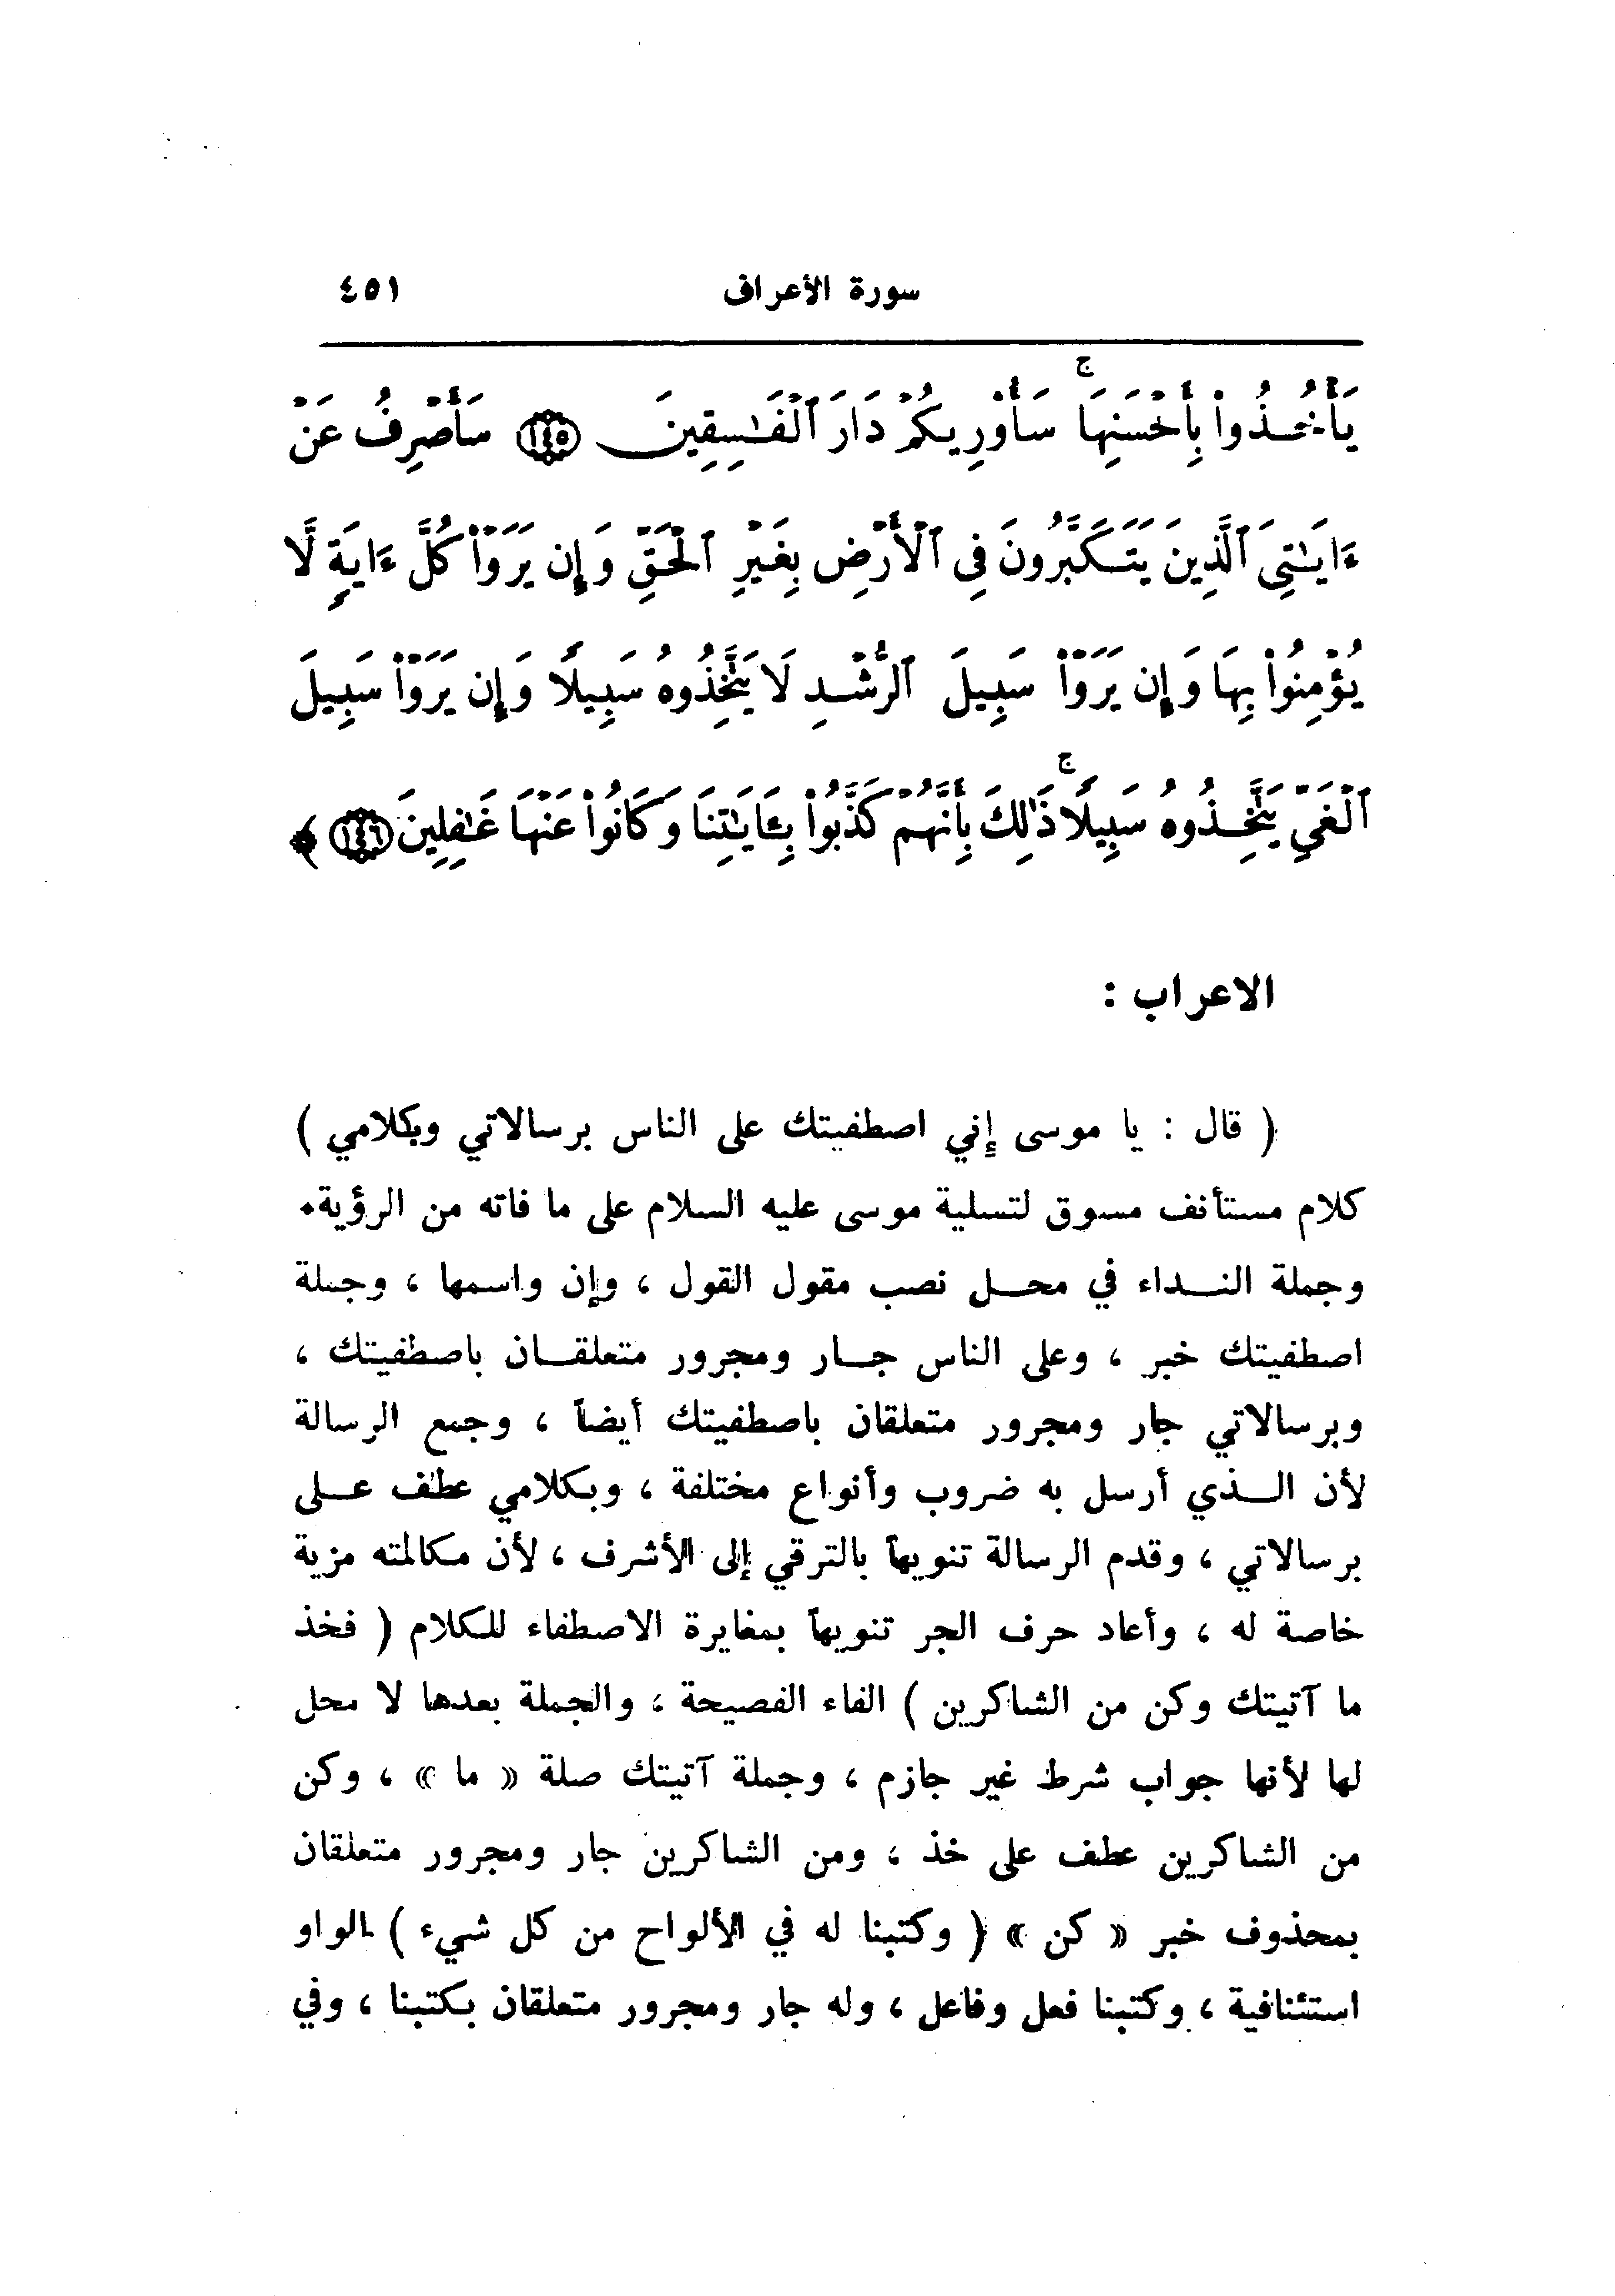 سورة الأعراف ٤٥١
يَأْخُذُوا۟ بِأَحْسَنِهَا ۚ سَأُو۟رِيكُمْ دَارَ ٱلْفَـٰسِقِينَ ١٤٥ سَأَصْرِفُ عَنْ
ءَايَـٰتِىَ ٱلَّذِينَ يَتَكَبَّرُونَ فِى ٱلْأَرْضِ بِغَيْرِ ٱلْحَقِّ وَإِن يَرَوْا۟ كُلَّ ءَايَةٍ لَّا
يُؤْمِنُوا۟ بِهَا وَإِن يَرَوْا۟ سَبِيلَ ٱلرُّشْدِ لَا يَتَّخِذُوهُ سَبِيلًا وَإِن يَرَوْا۟ سَبِيلَ
ٱلْغَىِّ يَتَّخِذُوهُ سَبِيلًا ۚ ذَٰلِكَ بِأَنَّهُمْ كَذَّبُوا۟ بِـَٔايَـٰتِنَا وَكَانُوا۟ عَنْهَا غَـٰفِلِينَ ١٤٦ ﴾
الاعراب :
( قال : يا موسى إني اصطفيتك على الناس برسالاتي وبكلامي )
كلام مستأنف مسوق لتسلية موسى عليه السلام على ما فاته من الرؤية.
وجملة النداء في محل نصب مقول القول ، وإن واسمها ، وجملة
اصطفيتك خبر ، وعلى الناس جار ومجرور متعلقان باصطفيتك ،
وبرسالاتي جار ومجرور متعلقان باصطفيتك أيضاً ، وجمع الرسالة
لأن الذي أرسل به ضروب وأنواع مختلفة ، وبكلامي عطف على
برسالاتي ، وقدم الرسالة تنويهاً بالترقي إلى الأشرف ، لأن مكالمته مزية
خاصة له ، وأعاد حرف الجر تنويهاً بمغايرة الاصطفاء للكلام ( فخذ
ما آتيتك وكن من الشاكرين ) الفاء الفصيحة ، والجملة بعدها لا محل
لها لأنها جواب شرط غير جازم ، وجملة آتيتك صلة « ما » ، وكن
من الشاكرين عطف على خذ ، ومن الشاكرين جار ومجرور متعلقان
بمحذوف خبر « كن » ( وكتبنا له في الألواح من كل شيء ) الواو
استئنافية ، وكتبنا فعل وفاعل ، وله جار ومجرور متعلقان بكتبنا ، وفي